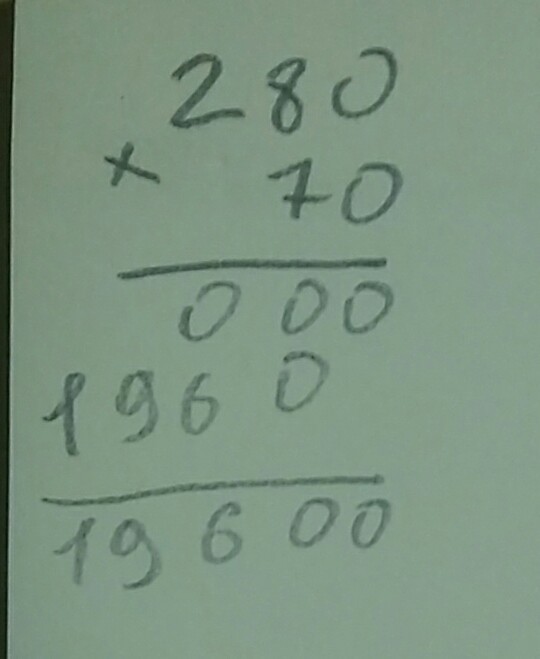 280
× 70
000
1960
19600